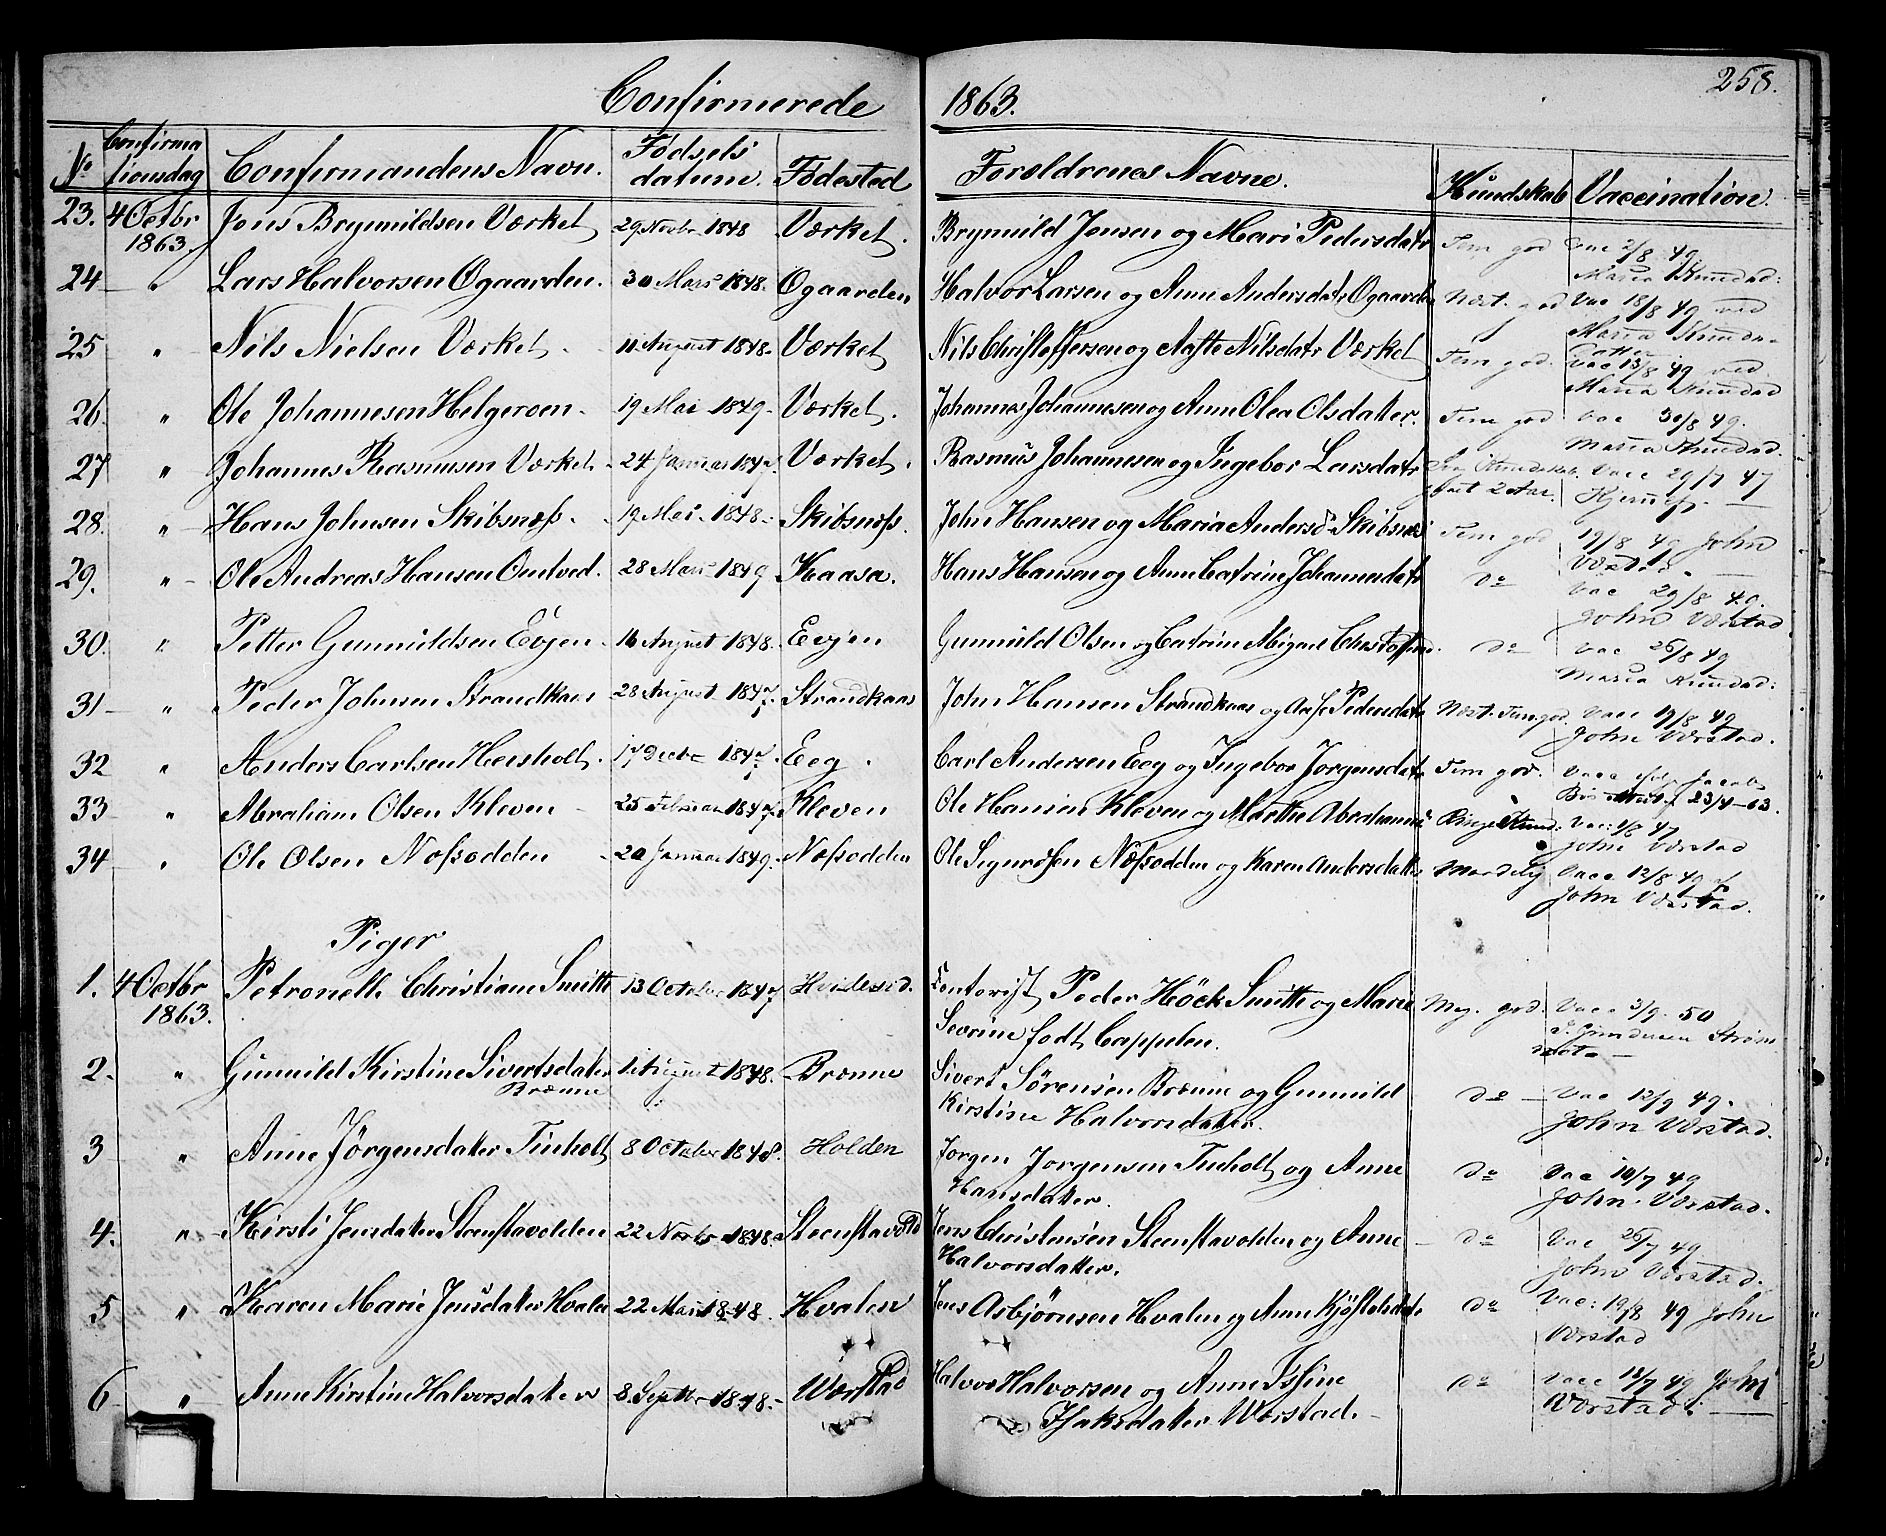 258.
Confirmerede 1863.
No Confirmationsdag Confirmandens Navn. Fødsels datum. Fødested Forældrenes Navne. Kundskab Vaccination
23. 4 Octbr 1863. Jens Brynnildsen Værket 29 Novbr 1848 Værket. Brynnild Jensen og Mari Pedersdatr Tem god vac 2/8 49. Maria Knudsd:
24 " Lars Halvorsen Øgaarden. 30 Mars 1848. Øgaarden Halvor Larsen og Anne Andersdatr Øgaarden Næst. god Vac 18/8 49 ved Maria Knuds-datter
25 " Nils Nielsen Værket 11 August 1848. Værket Nils Christoffersen og Aaste Nilsdatr Værket Tem god. vac 13/8 49 ved Maria Knudsd
26. " Ole Johannesen Helgeroen. 19 Mai 1849. Værket. Johannes Johannesen og Anne Olea Olsdatter. Tem god vac 30/8 49. Maria Knudsd.
27 " Johannes Rasmusen Værket. 24 Januar 1847. Værket. Rasmus Johannesen og Ingebor Larsdatr Kundskab 2 Aar. Vacc 29/7 47
28. " Hans Johnsen Skibsnæss. 19 Mai 1848. Skibsnæss. John Hansen og Maria Andersd. Skibsnæs Tem god 19/8 49 John Værstad.
29. " Ole Andreas Hansen Omtved. 28 Mars 1849 Kaasa. Hans Hansen og Anne Catrine Johannesdatr do vac 29/8 49. John Værstad
30. " Petter Gunnuldsen Evjen. 16 August 1848. Evjen Gunnuld Olsen og Catrine Abigael do vac 26/8 49 Maria Knudsd:
31 " Peder Johnsen Strandkaas 28 August 1847. Strandkaas John Hansen Strandkaas og Aase Pedersdatr Næst. Tem god. vacc 19/8 49 John Værstad.
32 " Anders Carlsen Hersholt. 17 Decbr 1847. Eeg. Carl Andersen Eeg og Ingebor Jørgensdatr Tem god. Vacc 23/4-63.
33 " Abraham Olsen Kleven 25 Februar 1847. Kleven Ole Hansen Kleven og Marthe Ringe Kund: Vac: John Værstad
34 " Ole Olsen Næssodden 20 Januar 1849. Næssodden Ole Næssodden og Karen Andersdatter Maadelig Vacc 12/8 49 af John Værstad.
Piger
1. 4 Octbr 1863. Petronelle Christiane Smith 13 October 1847 Hvideseid. Contorist Peder Høck Smith og Marie Severine født Cappelen. Meg. god. Vacc 3/9 50
2. " Gunnild Kirstine Sivertsdatter Brænne 1 August 1848. Brænne Sivert Sørensen Brænne og Gunnild Kirstine Halvorsdatter. do vac 12/9 49. John Værstad.
3 " Anne Jørgensdatter Tinholt 8 October 1848. Holden Jørgen Jørgensen Tinholt og Anne Hansdatter. do vac 10/7 49 John Værstad.
4. " Kirsti Jensdatter Steenstavolden 22 Novbr 1848. Steenstavold Jens Christensen Steenstavolden og Anne Halvorsdatter. do vac 26/7 49 John Værstad.
5 " Karen Marie Jensdatter Hvalen 22 Mars 1848. Hvalen Jens Asbjørnsen Hvalen og Anne Kjøstelsdatr do Vac: 19/8 49 John Værstad
6 " Anne Kirstine Halvorsdatter 8. Septbr 1848. Værstad Halvor Halvorsen og Anne Issine Isaksdatter Værstad. do vacc 18/7 49 John Værstad.